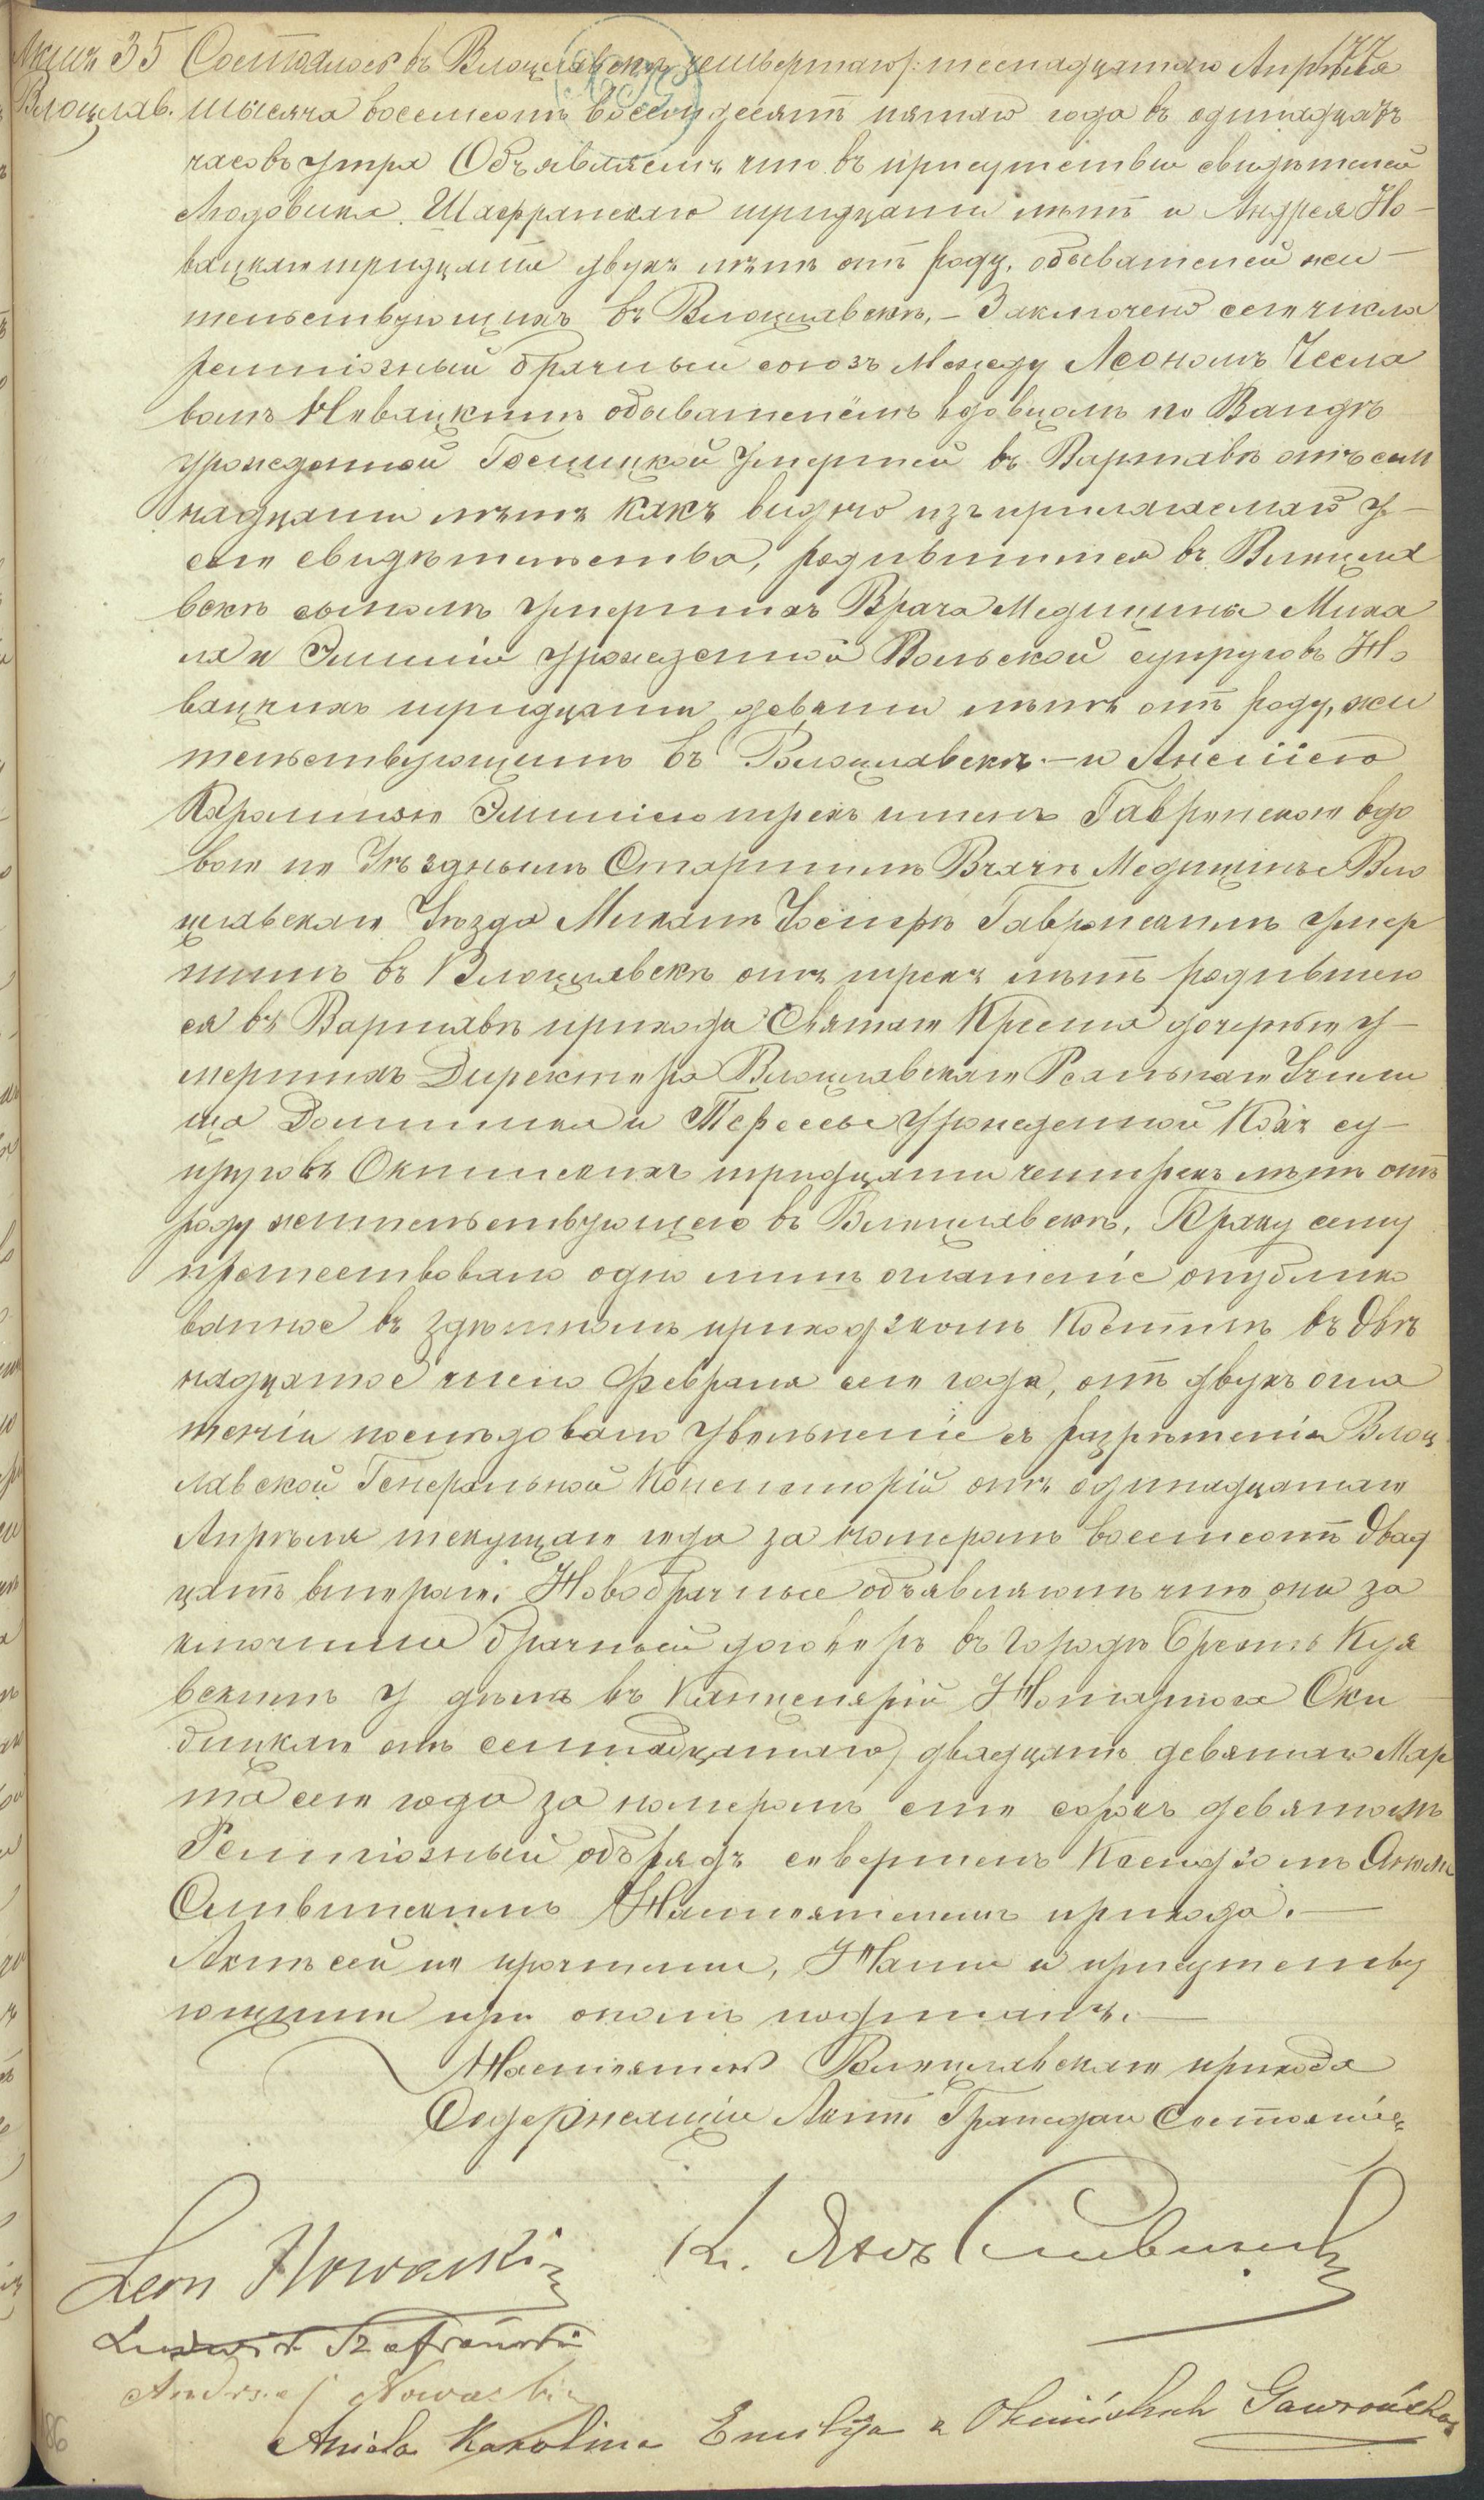 177
Актъ 35 Состоялось въ Влоцлавскѣ четвертаго / шеснадцатаго Апрѣля
Влоцлав. тысяча восемсотъ восемдесятъ пятаго года въ одинадцать
часовъ утра Объявляемъ что въ присутствіи свидѣтелей
Людовика Шафранскаго тридцати лѣтъ и Андрея Но-
вацкаго тридцати двухъ лѣтъ отъ роду, обывателей жи-
тельствующихъ въ Влоцлавскѣ, – Заключенъ сего числа
религіозный брачный союзъ между Леономъ Чесла
вомъ Новацкимъ обывателемъ вдовцомъ по Вандѣ
урожденной Госцицкой умершей въ Варшавѣ отъ сем
надцати лѣтъ какъ видно изъ прилагаемаго у-
сего свидѣтельства, родившимся въ Влоцла
вскѣ сыномъ умершихъ Врача Медицины Миха
ла и Эмиліи урожденной Вольской супруговъ Но
вацкихъ тридцати девяти лѣтъ отъ роду, жи
тельствующимъ въ Влоцлавскѣ. – и Анелiею
Каролиною Эмиліею трехъ именъ Гавронскою вдо
вою по Уѣздномъ Старшимъ Врачѣ Медицины Вло
цлавскаго Уѣзда Михалѣ Іосифѣ Гавронскимъ умер
шимъ въ Влоцлавскѣ отъ трехъ лѣтъ родившею
ся въ Варшавѣ прихода Святаго Креста дочерью у-
мершихъ Директора Влоцлавскаго Реальнаго Учили
ща Доминика и Терессы урожденной Кохъ су-
пруговъ Окминскихъ тридцати четырехъ лѣтъ отъ
роду жительствующею въ Влоцлавскѣ, Браку сему
предшествовало одно лишь оглашеніе опублико
ванное въ здѣшнемъ приходскомъ Костелѣ въ двѣ
надцатое число Февраля сего года, отъ двухъ огла
шеніи послѣдовало увольненіе съ разрѣшенія Влоц
лавской Генеральной Консисторіи отъ одинадцатаго
Апрѣля текущаго года за номеромъ восемсотъ двад
цать вторымъ. Новобрачные объявляютъ что они за
ключили брачный договоръ въ городѣ Брестѣ Куя
вскимъ у дѣлъ въ Канцеляріи Нотаріюса Оки
бицкаго отъ семнадцатаго / двадцать девятаго Мар
та сего года за номеромъ сто сорокъ девятымъ
Религіозный обрядъ совершенъ Ксендзомъ Яномъ
Сливинскимъ Настоятелемъ прихода. –
Актъ сей по прочтеніи, Нами и присутству
ющими при ономъ подписанъ. –
Настоятель Влоцлавскаго прихода
Содержащій Акты Граждан Состоянія
Leon Nowacki
К. Янъ Сливинскій
Ludwik Szafrański
Andrzej Nowacki
Aniela Karolina Emilija z Okmińskich Gawrońska
86